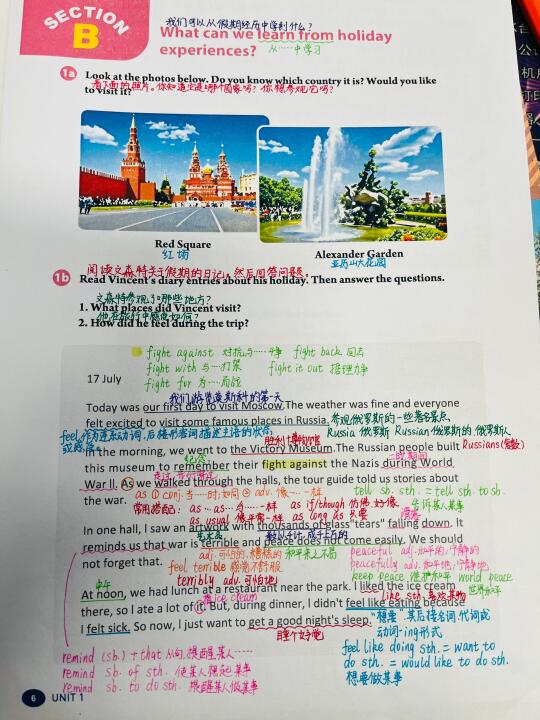 SECTION
B
我们可以从假期经历中学到什么?
What can we learn from holiday
experiences?
从……中学习
1a Look at the photos below. Do you know which country it is? Would you like
看下面的照片。你知道这是哪个国家吗?你想参观它吗?
to visit it?
Red Square
红场
Alexander Garden
亚历山大花园
阅读文森特关于假期的日记。然后回答问题。
1b Read Vincent's diary entries about his holiday. Then answer the questions.
文森特参观了哪些地方?
1. What places did Vincent visit?
他在旅行中感觉如何?
2. How did he feel during the trip?
fight against 对抗;与……斗争 fight back 回击
fight with 与……打架 fight it out 据理力争
fight for 为……而战
17 July
我们游览莫斯科的第一天
Today was our first day to visit Moscow. The weather was fine and everyone
felt excited to visit some famous places in Russia. 参观俄罗斯的一些著名景点
feel作为连系动词,后接形容词描述主语的状态,
Russia 俄罗斯 Russian 俄罗斯的;俄罗斯人
或感受。
胜利博物馆
Russians(复数)
In the morning, we went to the Victory Museum. The Russian people built
纪念
二战期间
this museum to remember their fight against the Nazis during World
War II. As we walked through the halls, the tour guide told us stories about
the war.
as ① conj. 当……时;如同 ② adv. 像……一样
tell sb. sth. = tell sth. to sb.
告诉某人某事
常用搭配: as … as … 与……一样 as if/though 仿佛,好像
as usual 像平常一样 as long as 只要
In one hall, I saw an artwork with thousands of glass "tears" falling down. It
艺术品
数以千计,成千上万的
reminds us that war is terrible and peace does not come easily. We should
not forget that.
adj. 可怕的,糟糕的
和平来之不易
feel terrible 感觉不舒服
terribly adv. 可怕地
peaceful adj. 和平的,宁静的
peacefully adv. 和平地,宁静地
keep peace 维护和平 world peace
世界和平
中午
At noon, we had lunch at a restaurant near the park. I liked the ice cream
指 ice cream
like sth. 喜欢某物
there, so I ate a lot of it. But, during dinner, I didn't feel like eating because
I felt sick. So now, I just want to get a good night's sleep.
睡个好觉
“想要”其后接名词、代词或
动词-ing形式
feel like doing sth. = want to
do sth. = would like to do sth.
想要做某事
remind (sb.) + that 从句,提醒某人……
remind sb. of sth. 使某人想起某事
remind sb. to do sth. 提醒某人做某事
6 UNIT 1